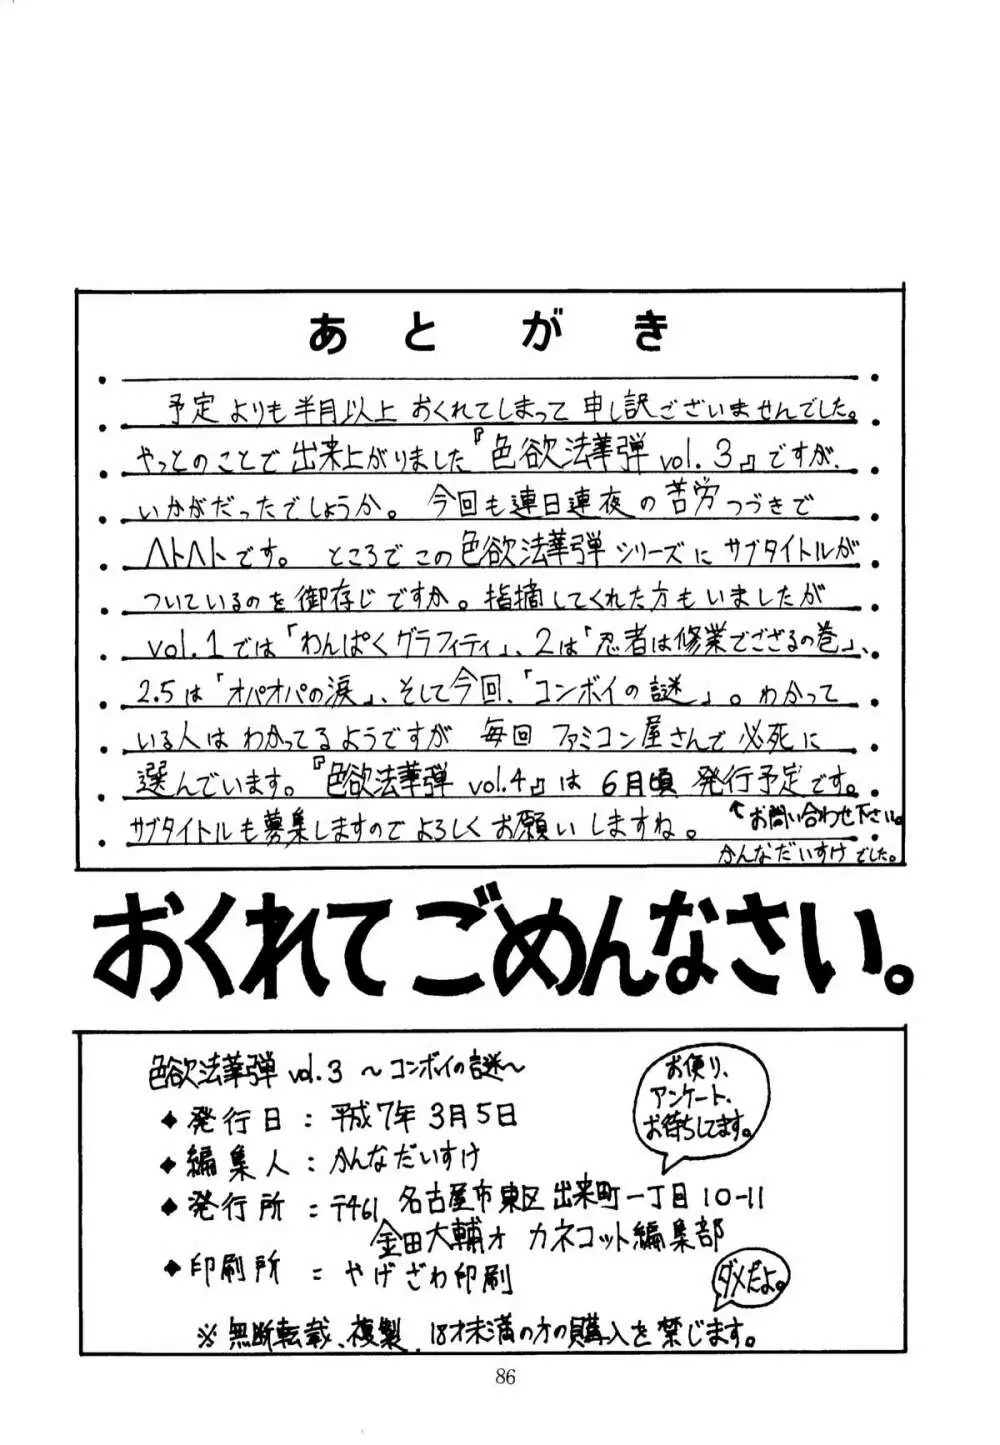 あとがき
予定よりも半月以上おくれてしまって申し訳ございませんでした。
やっとのことで出来上がりました『色欲法華弾 vol.3』ですが、
いかがだったでしょうか。今回も連日連夜の苦労つづきで
ヘトヘトです。ところでこの色欲法華弾シリーズにサブタイトルが
ついているのを御存じですか。指摘してくれた方もいましたが
vol.1では「わんぱくグラフィティ」、2は「忍者は修業でござるの巻」、
2.5は「オパオパの涙」、そして今回、「コンボイの謎」。わかって
いる人はわかってるようですが毎回ファミコン屋さんで必死に
選んでいます。『色欲法華弾 vol.4』は6月頃発行予定です。
サブタイトルも募集しますのでよろしくお願いしますね。
↑お問い合わせ下さい。
かんなだいすけでした。
おくれてごめんなさい。
色欲法華弾 vol.3 〜コンボイの謎〜
◆発行日：平成7年3月5日
◆編集人：かんなだいすけ
◆発行所：〒461 名古屋市東区出来町一丁目10-11
金田大輔方 カネコット編集部
◆印刷所：やげざわ印刷
※無断転載、複製、18才未満の方の購入を禁じます。
お便り、
アンケート、
お待ちしてます。
ダメだよ。
86